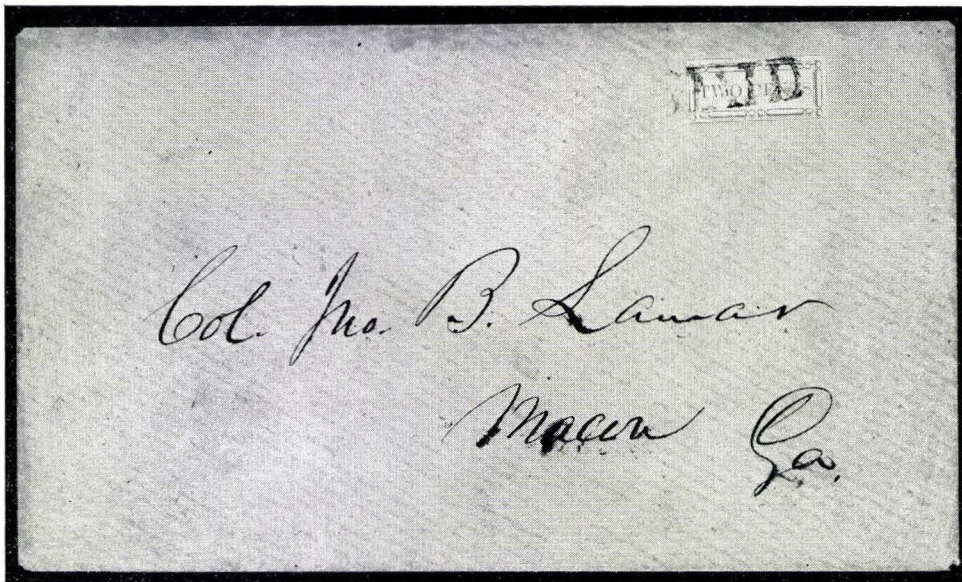 TWO CENTS
Col. Jno. B. Lamar
Macon Ga.